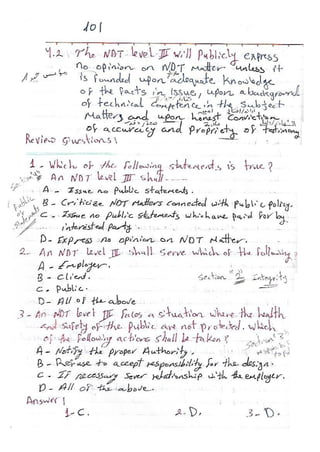 101
4.2 The NDT level III will Publicly express
no opinion on NDT Matter unless it
is founded upon adequate knowledge
of the facts in issue, upon a background
of technical Competence in the subject
Matters and upon honest Conviction
of accuracy and Propriety of testimony
Review questions:
1 - Which of the following statements is true?
An NDT level III shall
A - Issue no Public statements.
B - Criticize NDT Matters connected with Public policy.
C - Issue no Public statements which are paid for by
interested Party
D - Express no opinion on NDT Matter.
2 - An NDT level III shall serve which of the following?
A - Employer.
B - Client.
Section "2" Integrity
C - Public.
D - All of the above
3 - An NDT level III faces a situation where the health
and safety of the Public are not protected. which
of the following actions shall be taken?
A - Notify the proper Authority.
B - Refuse to accept responsibility for the design.
C - If necessary sever relationship with the employer.
D - All of the above.
Answer:
1- C. 2. D. 3- D.
Public
statements